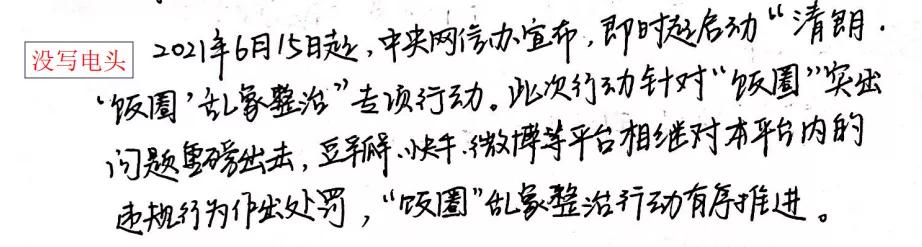 没写电头
2021年6月15日起,中央网信办宣布,即时起启动“清朗·
‘饭圈’乱象整治”专项行动。此次行动针对“饭圈”突出
问题重磅出击,豆瓣、快手、微博等平台相继对本平台内的
违规行为作出处罚,“饭圈”乱象整治行动有序推进。